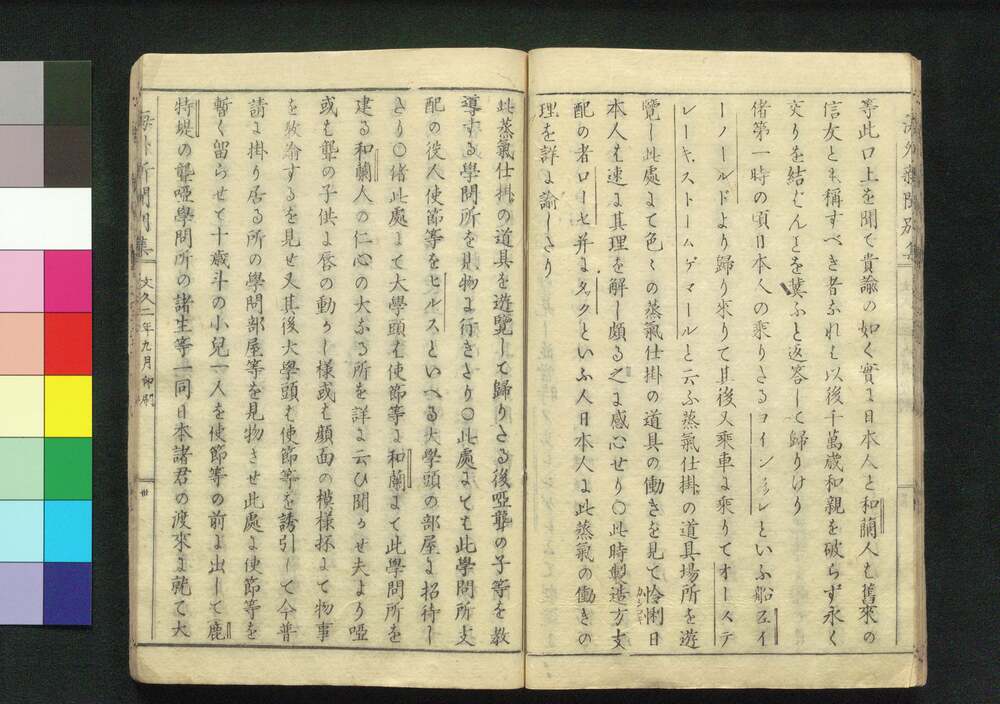 等此口上を聞て貴諭の如く實に日本人と和蘭人も舊來の
信友とも稱すべき者なれも以後千萬歳和親を破らず永く
交りを結ばんとを冀ふと返答して歸りけり
偖第一時の頃日本人の乘りさる
といふ船
ーノールドより歸り來りて其後又乘車に乘りてオーステ
レーキストームゲマールと云ふ蒸氣仕掛の道具場所を遊
覽し此處にて色々の蒸氣仕掛の道具の働きを見て怜悧日
本人も速に其理を解し頗る之に感心せり〇此時製造方支
配の者ローセ并にタックといふ人日本人に此蒸氣の働きの
理を詳に諭しさり
此蒸氣仕掛の道具を遊覽して歸りさる後啞聾の子等を教
導する學問所を見物に行きさり〇此處にても此學問所支
配の役人使節等をヒルスといへる大學頭の部屋に招待し
さり〇偖此處にて大學頭も使節等に和蘭にて此學問所を
建る和蘭人の仁心の大なる所を詳に云ひ聞かせ夫より啞
或も聾の子供に唇の動かし樣或も顏面の模樣抔にて物事
を教諭するを見せ又其後大學頭も使節等を誘引して今普
請に掛り居る所の學問部屋等を見物させ此處に使節等を
暫く留らせて十歳斗の小兒一人を使節等の前に出して鹿
特堤の聾啞學問所の諸生等一同日本諸君の渡來に就て大
文久二年九月
卅